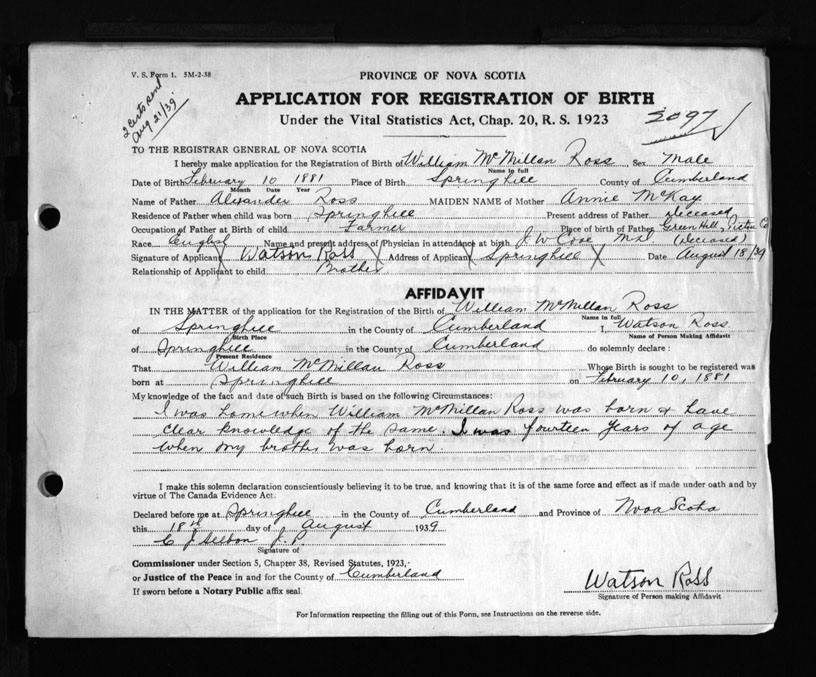 V. S. Form 1. 5M-2-38
PROVINCE OF NOVA SCOTIA
2 Certs sent
Aug 21/39
APPLICATION FOR REGISTRATION OF BIRTH
Under the Vital Statistics Act, Chap. 20, R. S. 1923
2097
TO THE REGISTRAR GENERAL OF NOVA SCOTIA
I hereby make application for the Registration of Birth of William McMillan Ross Sex Male
Name in full
Date of Birth February 10 1881 Place of Birth Springhill County of Cumberland
Month Date Year
Name of Father Alexander Ross MAIDEN NAME of Mother Annie McKay
Residence of Father when child was born Springhill Present address of Father deceased
Occupation of Father at Birth of child Farmer Place of birth of Father Green Hill, Pictou Co
Race English Name and present address of Physician in attendance at birth J. W. Cove, MD (deceased)
Signature of Applicant Watson Ross Address of Applicant Springhill Date August 18/39
Relationship of Applicant to child Brother
AFFIDAVIT
IN THE MATTER of the application for the Registration of the Birth of William McMillan Ross
Name in full
of Springhill in the County of Cumberland I, Watson Ross
Birth Place Name of Person Making Affidavit
of Springhill in the County of Cumberland do solemnly declare :
Present Residence
That William McMillan Ross Whose Birth is sought to be registered was
born at Springhill on February 10, 1881
My knowledge of the fact and date of such Birth is based on the following Circumstances:
I was home when William McMillan Ross was born & have
clear knowledge of the same. I was fourteen years of age
when my brother was born.
I make this solemn declaration conscientiously believing it to be true, and knowing that it is of the same force and effect as if made under oath and by
virtue of The Canada Evidence Act.
Declared before me at Springhill in the County of Cumberland and Province of Nova Scotia
this 18th day of August 1939
C J J. P.
Signature of
Commissioner under Section 5, Chapter 38, Revised Statutes, 1923,
or Justice of the Peace in and for the County of Cumberland
If sworn before a Notary Public affix seal.
Watson Ross
Signature of Person making Affidavit
For Information respecting the filling out of this Form, see Instructions on the reverse side.